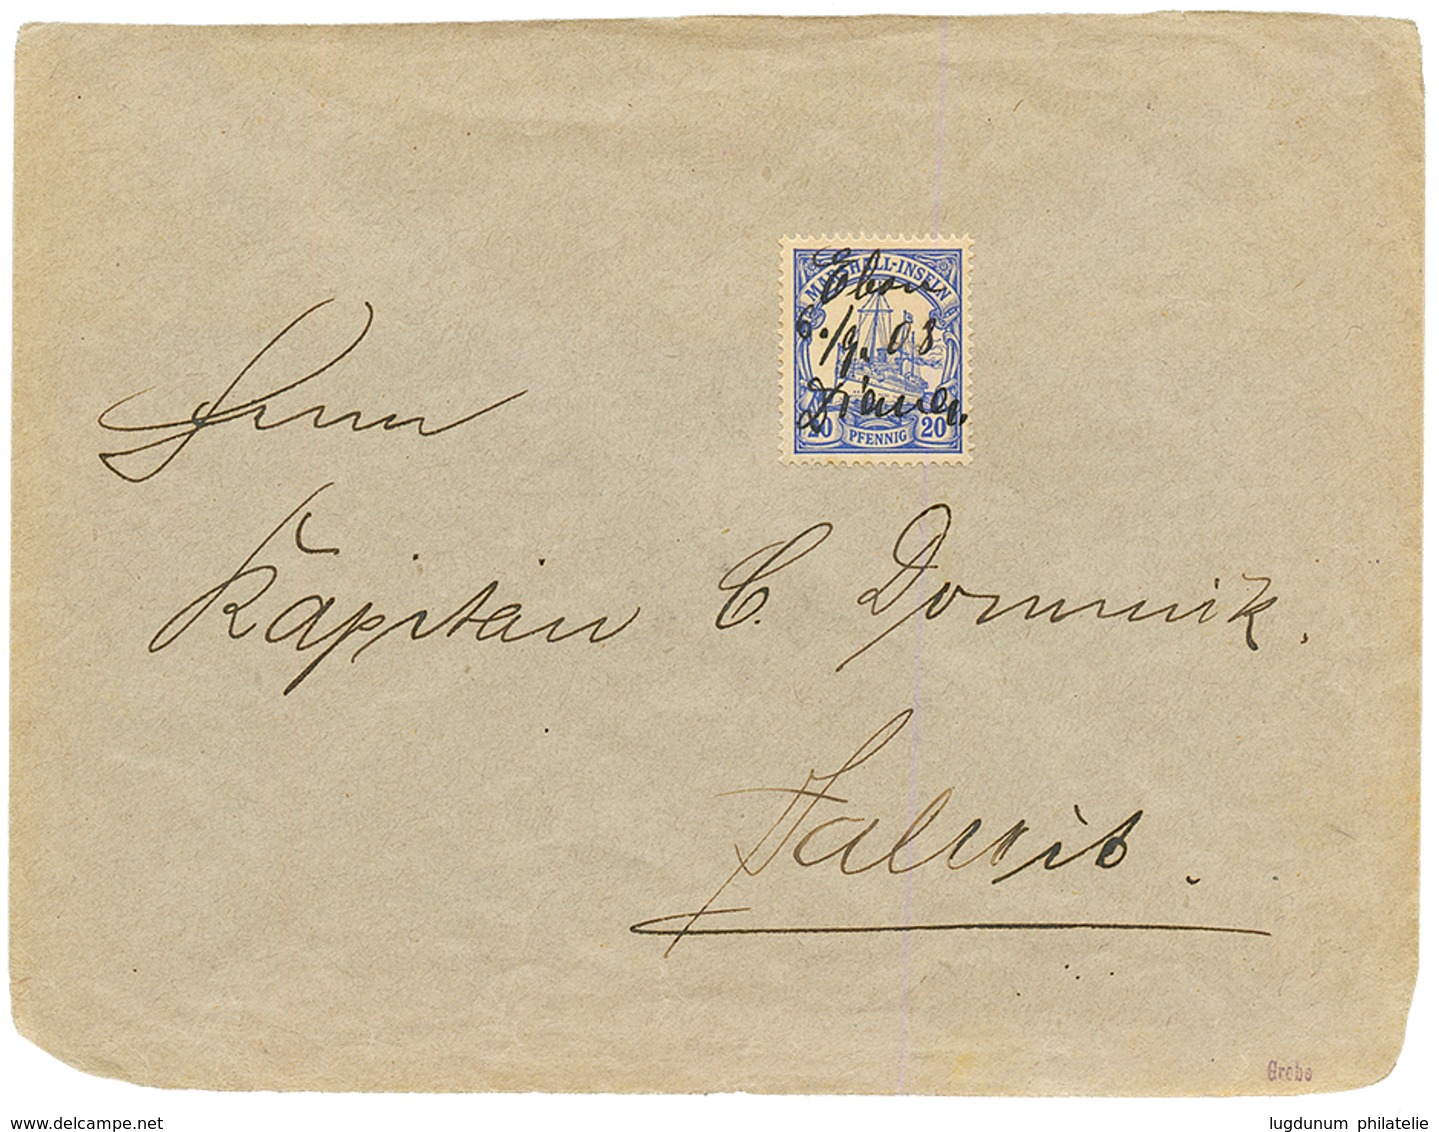 MARSHALL-INSELN
Ebon
6./9. 08
20 PFENNIG 20
Herrn
Kapitän C. Dominik.
Jaluit.
Grobe
delcampe.net
lugdunum philatelie